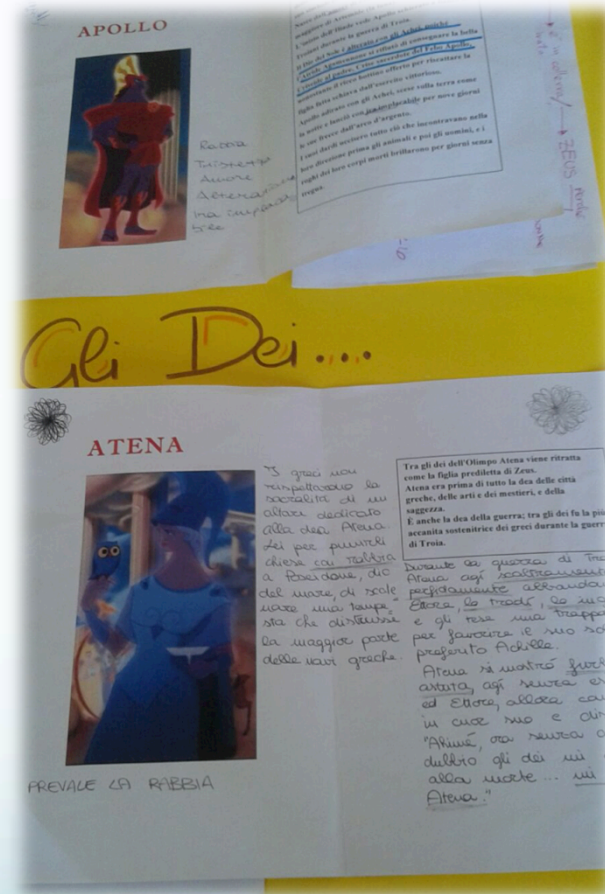 APOLLO
L'unico dell'Iliade vede Apollo
Troiani durante la guerra di Troia.
Il Dio del Sole è adirato con gli Achei, poiché
l'Atride Agamennone si rifiutò di consegnare la bella
Criseide al padre, Crise sacerdote del Febo Apollo,
nonostante il ricco bottino offerto per riscattare la
figlia fatta schiava dall'esercito vittorioso.
Apollo adirato con gli Achei, scese sulla terra come
la notte e lanciò con ira implacabile per nove giorni
le sue frecce dall'arco d'argento.
I suoi dardi uccisero tutto ciò che incontravano nella
loro direzione prima gli animali e poi gli uomini, e i
roghi dei loro corpi morti brillarono per giorni senza
tregua.
Rabbia
Tristezza
Amore
è in collera
ZEUS perché
Gli Dei....
ATENA
"I greci non
rispettarono la
sacralità di un
altare dedicato
alla dea Atena.
Lei per punirli
chiese con rabbia
a Poseidone, dio
del mare, di scate
nare una tempe"
sta che distrusse
la maggior parte
delle navi greche.
PREVALE LA RABBIA
Tra gli dei dell'Olimpo Atena viene ritratta
come la figlia prediletta di Zeus.
Atena era prima di tutto la dea delle città
greche, delle arti e dei mestieri, e della
saggezza.
È anche la dea della guerra; tra gli dei fu la più
accanita sostenitrice dei greci durante la guerra
di Troia.
Durante la guerra di
Atena agì
perfidamente
Ettore, lo tradì, lo
e gli tese una
per favorire il suo
preferito Achille.
Atena si mostrò
astuta, agì senza
ed Ettore, allora
in cuor suo e
"Ahimé, ora senza
dubbio gli dei mi
alla morte... mi
Atena."